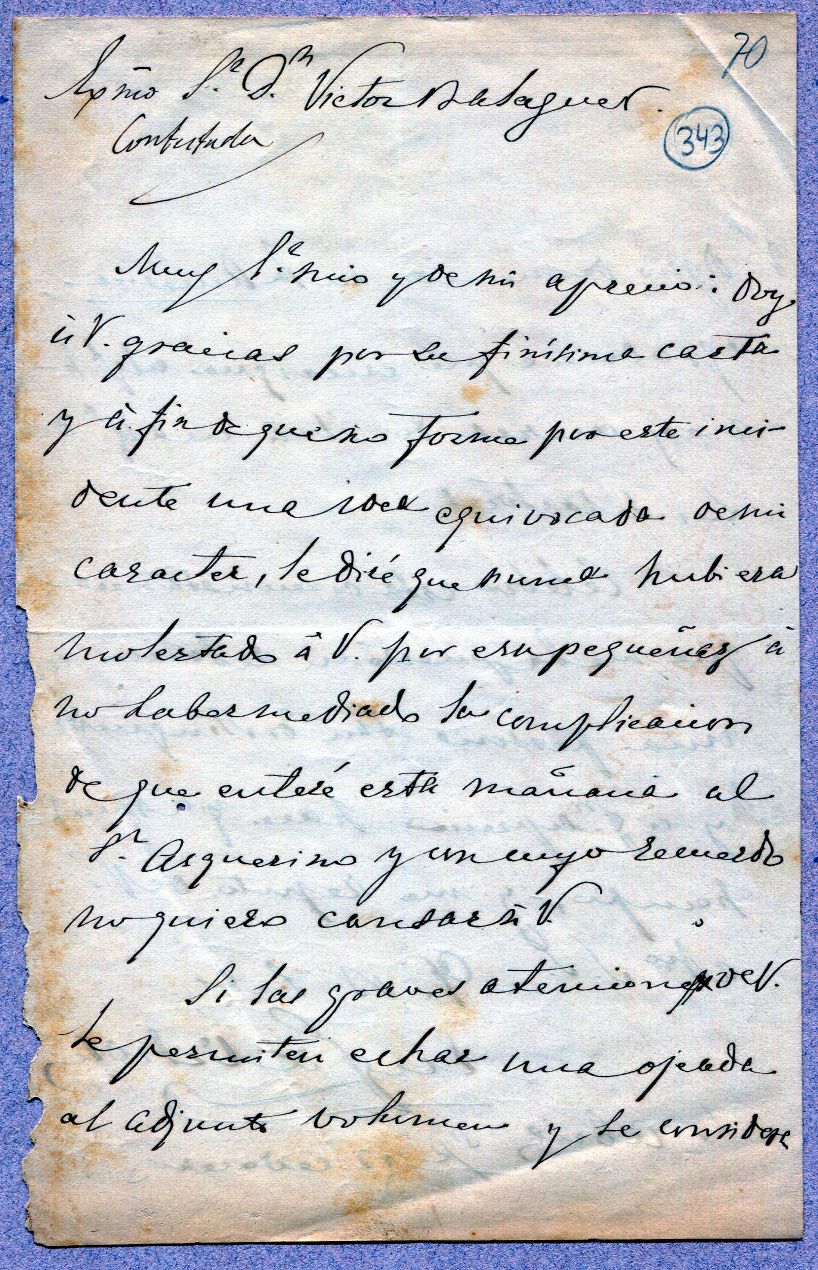 70
Exmo Sr. Dn. Victor Balaguer.
343
Contestada
Muy Sr. mio y de mi aprecio: doy
á V. gracias por su finísima carta
y á fin de que no forme por este inci-
dente una idea equivocada de mi
caracter, le diré que nunca hubiera
molestado á V. por esa pequeñez á
no haber mediado la complicacion
de que enteré esta mañana al
Sr. Asquerino y con cuyo recuerdo
no quiero cansar á V.
Si las graves atenciones de V.
le permiten echar una ojeada
al adjunto volumen y le considera